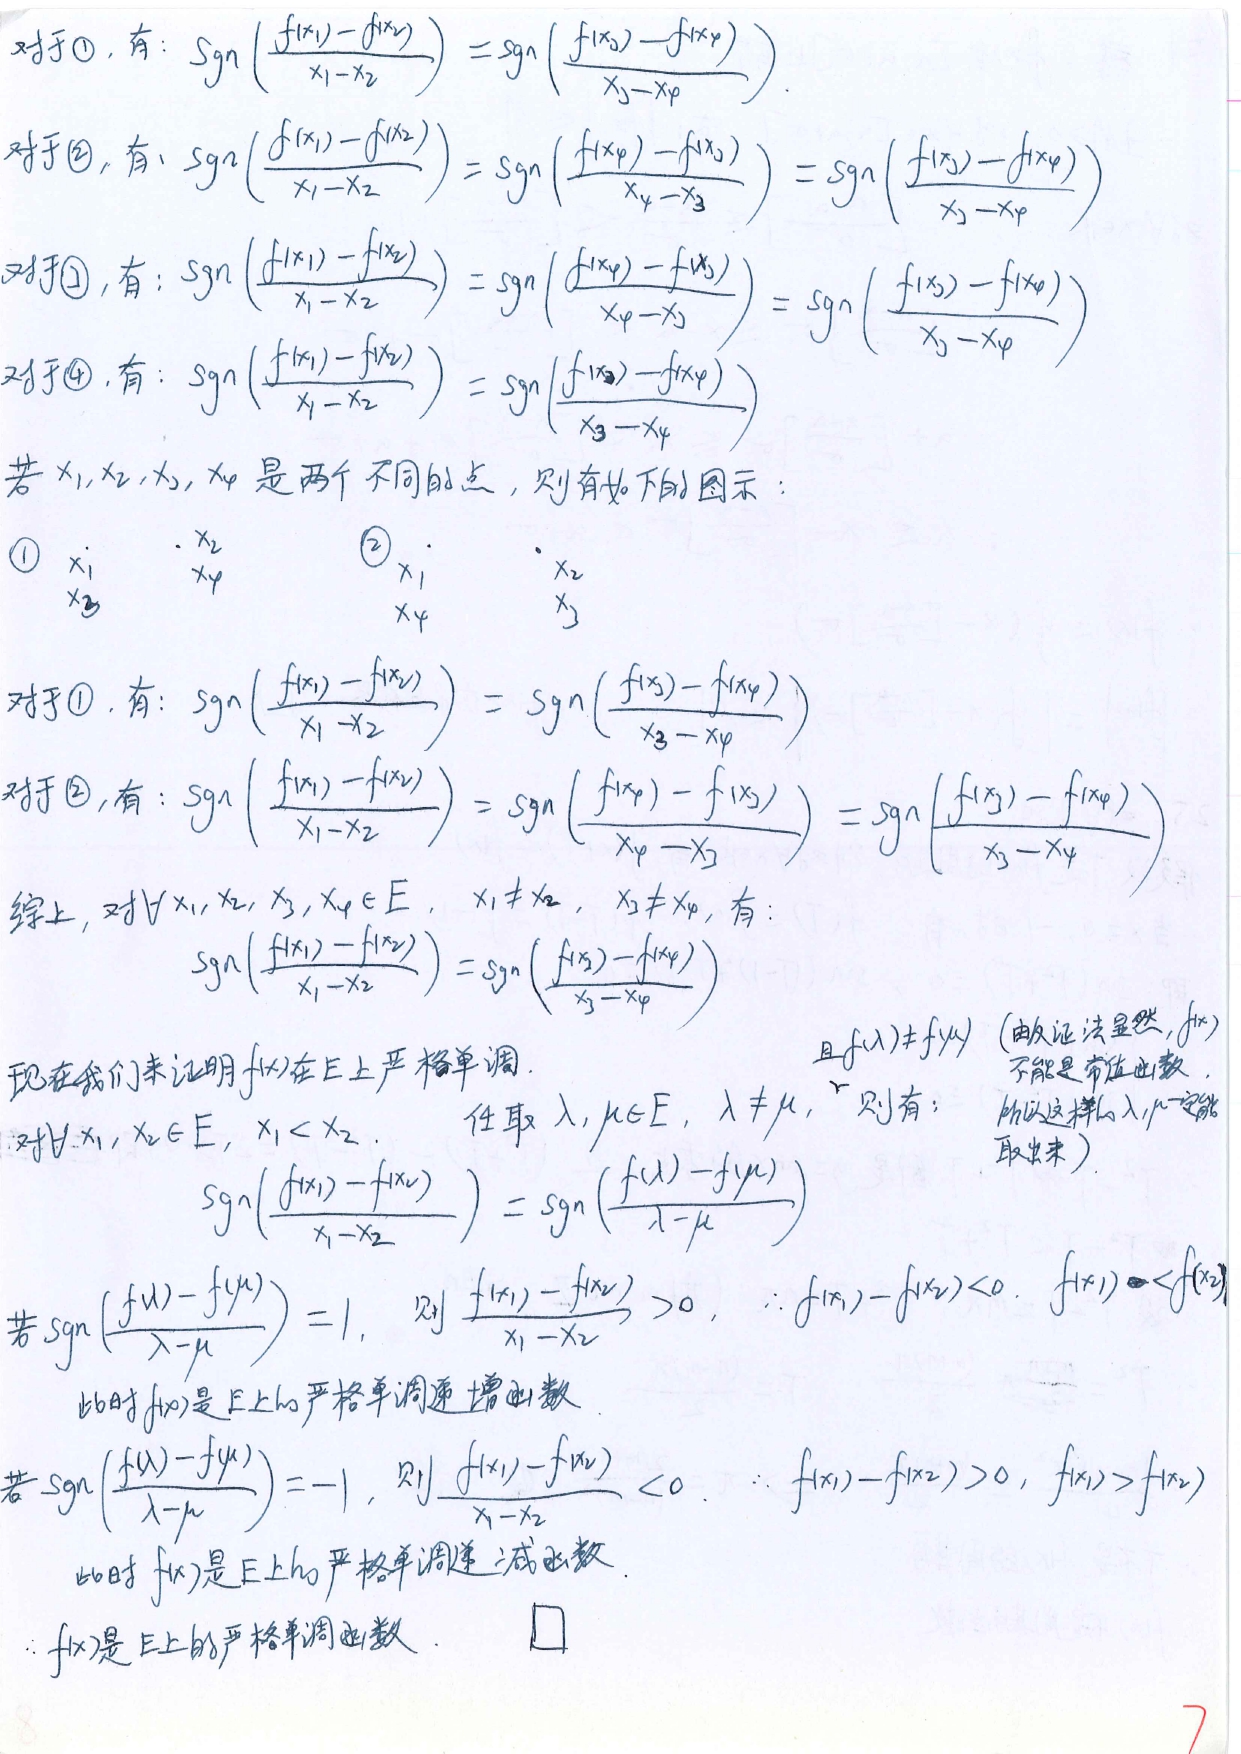 对于①, 有: sgn((f(x₁)-f(x₂))/(x₁-x₂)) = sgn((f(x₃)-f(x₄))/(x₃-x₄)).
对于②, 有: sgn((f(x₁)-f(x₂))/(x₁-x₂)) = sgn((f(x₄)-f(x₃))/(x₄-x₃)) = sgn((f(x₃)-f(x₄))/(x₃-x₄))
对于③, 有: sgn((f(x₁)-f(x₂))/(x₁-x₂)) = sgn((f(x₄)-f(x₃))/(x₄-x₃)) = sgn((f(x₃)-f(x₄))/(x₃-x₄))
对于④, 有: sgn((f(x₁)-f(x₂))/(x₁-x₂)) = sgn((f(x₃)-f(x₄))/(x₃-x₄))
若 x₁, x₂, x₃, x₄ 是两个不同的点, 则有如下的图示:
① x₁ x₂ ② x₁ x₂
x₃ x₄ x₄ x₃
对于①, 有: sgn((f(x₁)-f(x₂))/(x₁-x₂)) = sgn((f(x₃)-f(x₄))/(x₃-x₄))
对于②, 有: sgn((f(x₁)-f(x₂))/(x₁-x₂)) = sgn((f(x₄)-f(x₃))/(x₄-x₃)) = sgn((f(x₃)-f(x₄))/(x₃-x₄))
综上, 对∀x₁, x₂, x₃, x₄∈E, x₁≠x₂, x₃≠x₄, 有:
sgn((f(x₁)-f(x₂))/(x₁-x₂)) = sgn((f(x₃)-f(x₄))/(x₃-x₄))
现在我们来证明f(x)在E上严格单调.
对∀x₁, x₂∈E, x₁<x₂. 任取λ, μ∈E, λ≠μ, 且f(λ)≠f(μ) 则有:
(由反证法显然, f(x)
不能是常值函数.
所以这样的λ, μ一定能
取出来).
sgn((f(x₁)-f(x₂))/(x₁-x₂)) = sgn((f(λ)-f(μ))/(λ-μ))
若sgn((f(λ)-f(μ))/(λ-μ))=1, 则(f(x₁)-f(x₂))/(x₁-x₂)>0, ∴f(x₁)-f(x₂)<0. f(x₁)<f(x₂)
此时f(x)是E上的严格单调递增函数.
若sgn((f(λ)-f(μ))/(λ-μ))=-1, 则(f(x₁)-f(x₂))/(x₁-x₂)<0. ∴f(x₁)-f(x₂)>0, f(x₁)>f(x₂)
此时f(x)是E上的严格单调递减函数.
∴f(x)是E上的严格单调函数. □
7